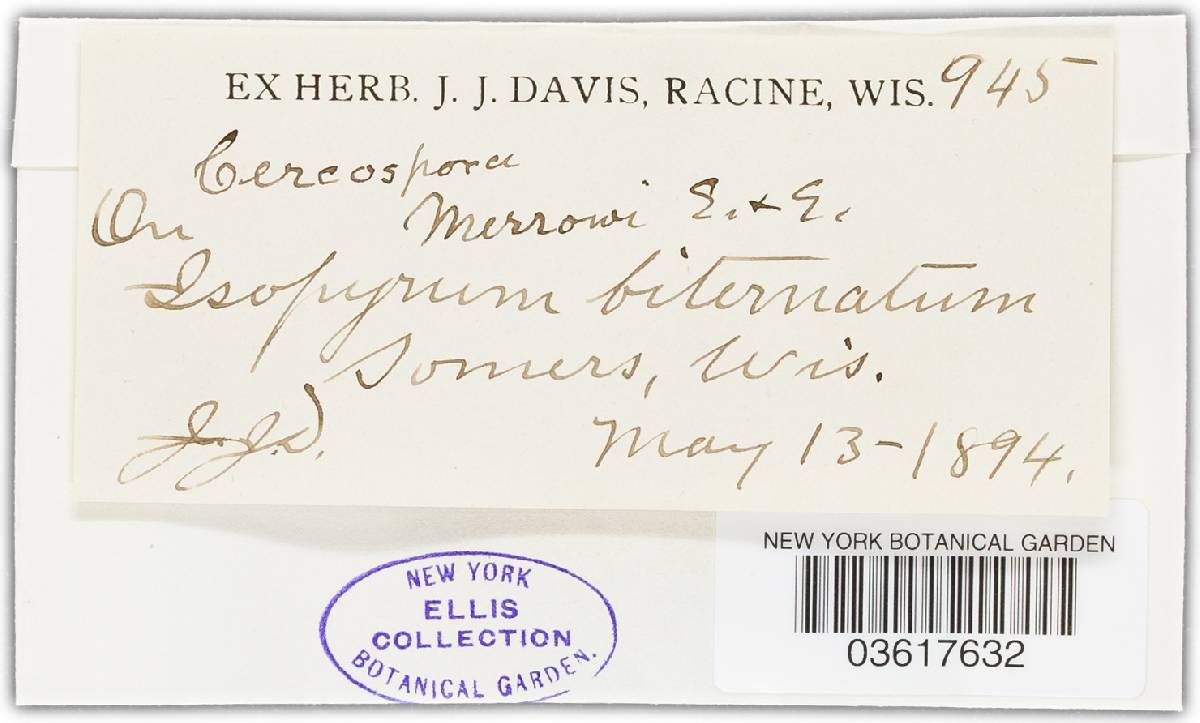 EX HERB. J. J. DAVIS, RACINE, WIS. 945
Cercospora
On Merrowi E. & E.
Isopyrum biternatum
Somers, Wis.
J.J.D. May 13-1894.
NEW YORK BOTANICAL GARDEN
03617632
NEW YORK
ELLIS
COLLECTION
BOTANICAL GARDEN.